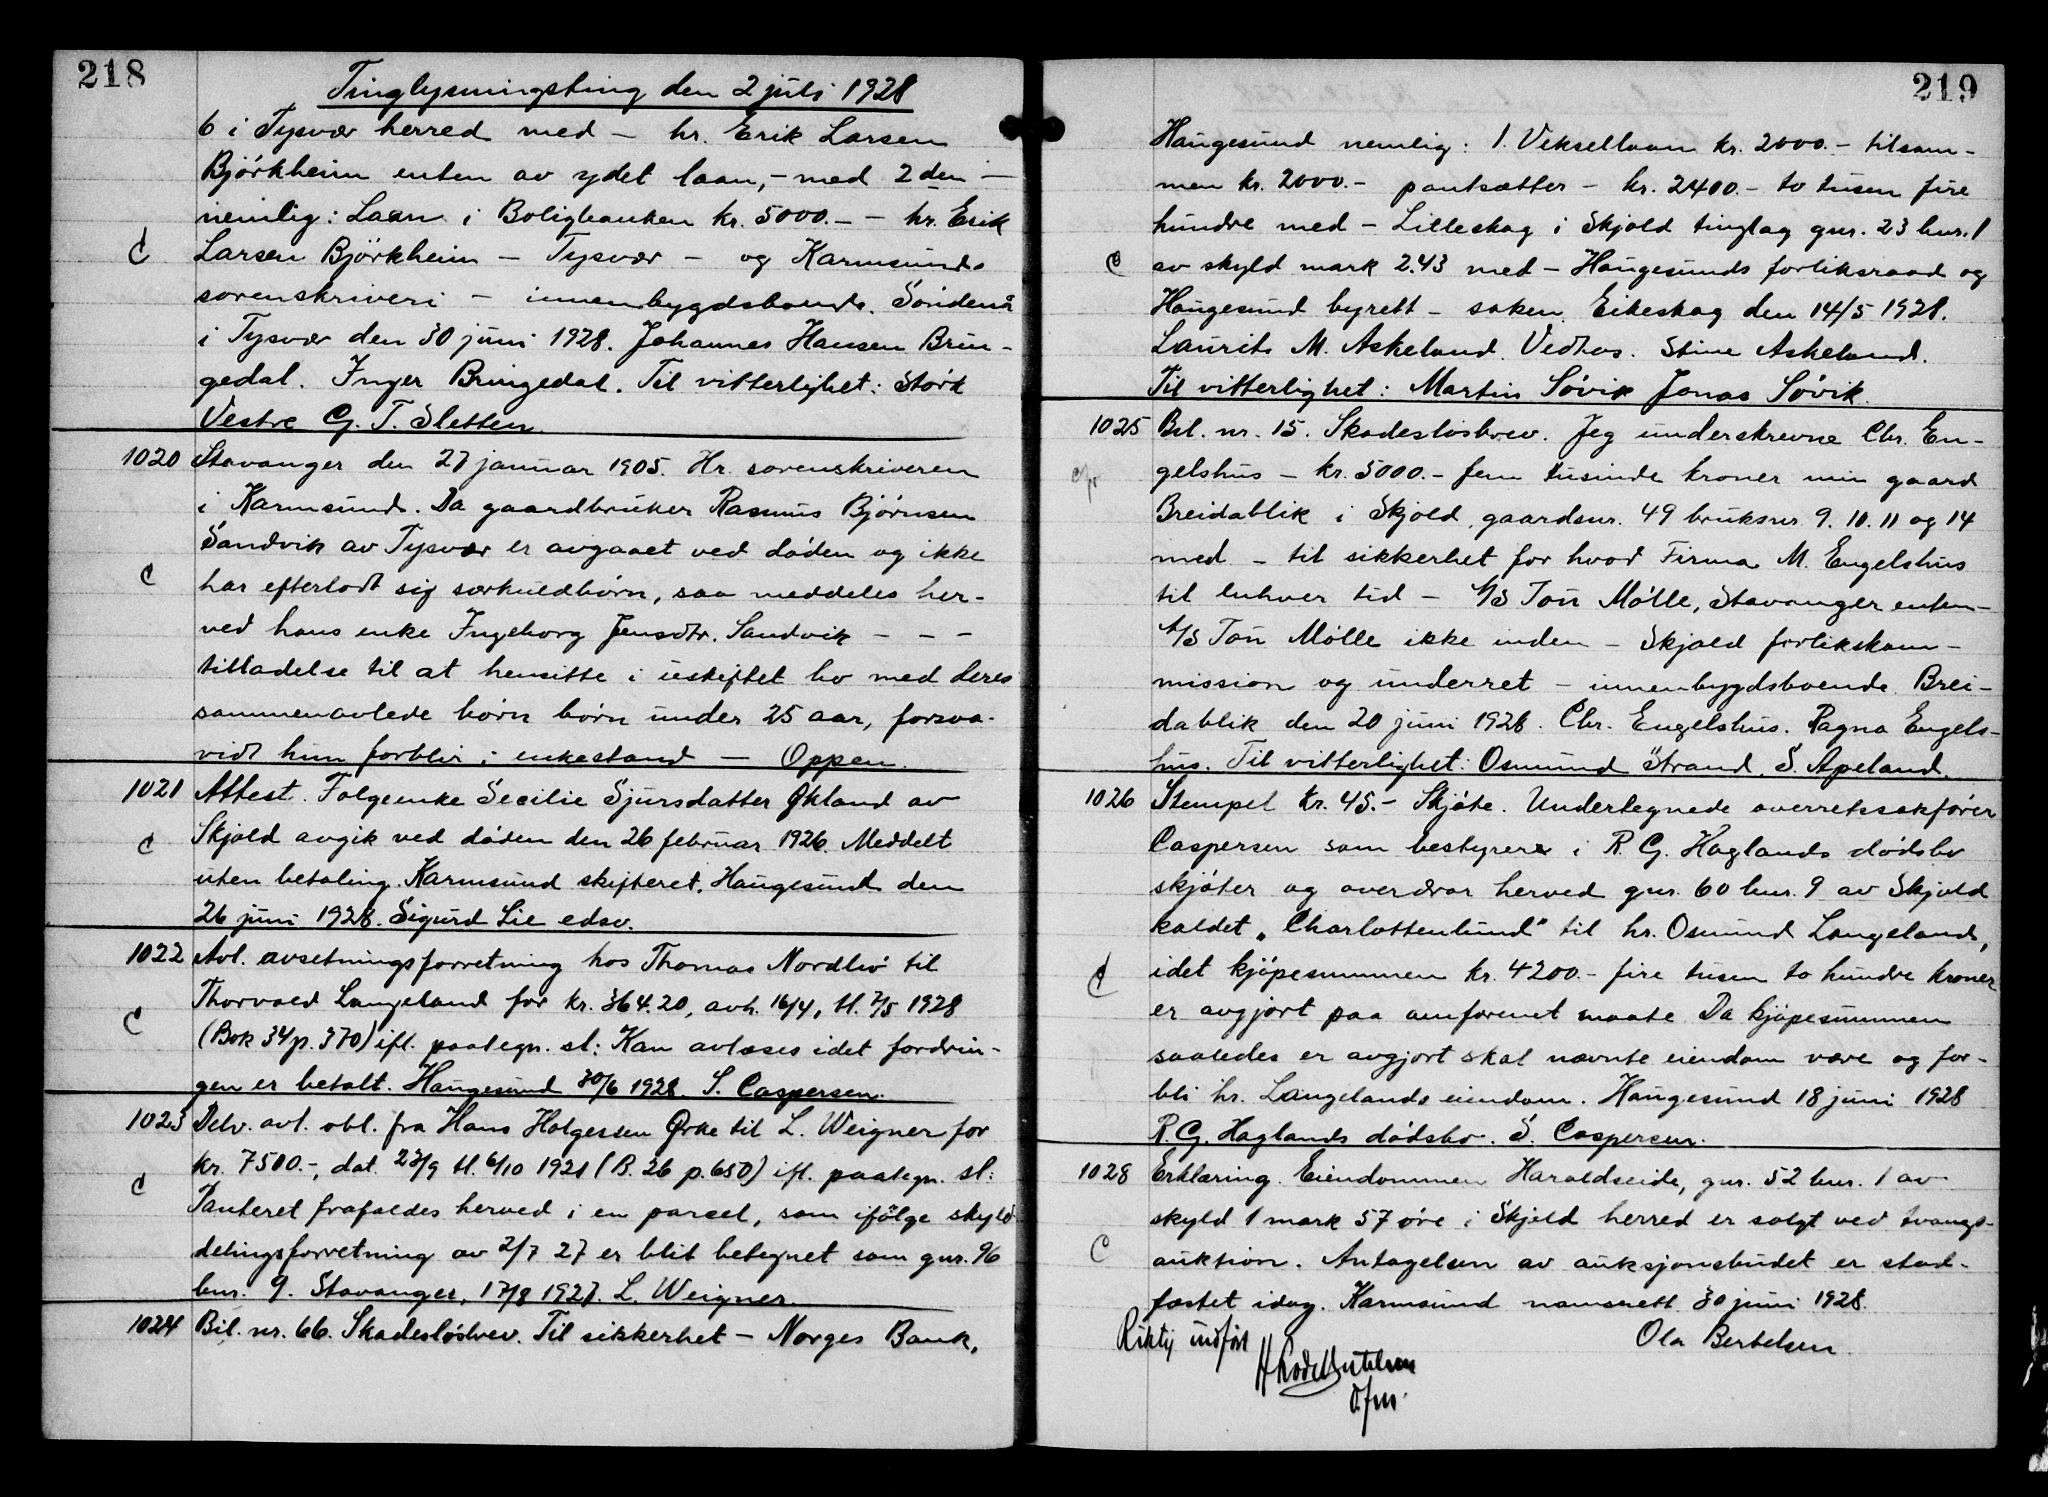 218
Tinglysningsting den 2 juli 1928
6 i Tysvær herred med – hr. Erik Larsen
Björkheim enten av ydet laan, – med 2den –
nemlig: Laan i Boligbanken kr. 5000.– – hr. Erik
Larsen Björkheim – Tysvær – og Karmsunds
sorenskriveri – innenbygdsboende.
i Tysvær den 30 juni 1928. Johannes Hansen Brin-
gedal. Inger Bringedal. Til vitterlighet: Störk
Vestre G. T. Sletten.
1020 Stavanger den 27 januar 1905. Hr. sorenskriveren
i Karmsund. Da gaardbruker Rasmus Björnsen
Sandvik av Tysvær er avgaaet ved döden og ikke
har efterladt sig særkuldbörn, saa meddeles her-
ved hans enke Ingeborg Jensdtr. Sandvik – – –
tilladelse til at hensitte i uskiftet bo med deres
sammenavlede börn börn under 25 aar, forsva-
vidt hun forblir i enkestand – Oppen.
1021 Attest. Folgeenke Secilie Sjursdatter Økland av
Skjold avgik ved döden den 26 februar 1926. Meddelt
uten betaling. Karmsund skifteret, Haugesund den
26 juni 1928. Sigurd Lie edsv.
1022 Avl. avsetningsforretning hos Thomas Nordbö til
Thorvald Langeland for kr. 364.20, avh. 16/4, tl. 7/5 1928
(Bok 34 p. 370) ifl. paategn. sl: Kan avlæses idet fordrin-
gen er betalt. Haugesund 30/6 1928. S. Caspersen.
1023 Delv. avl. obl. fra Hans Holgersen Ørke til L. Weigner for
kr. 7500.–, dat. 23/9 tl. 6/10 1921 (B. 26 p. 650) ifl. paategn. sl:
Panteret frafaldes herved i en parcel, som ifölge skyld-
delingsforretning av 2/7 27 er blit betegnet som gnr. 96
bnr. 9. Stavanger, 17/8 1927. L. Weigner.
1024 Bil. nr. 66. Skadeslösbrev. Til sikkerhet – Norges Bank,
219
Haugesund nemlig: 1. Veksellaan kr. 2000.– tilsam-
men kr. 2000.– pantsætter – kr. 2400.– to tusen fire
hundre med – Lilleskog i Skjold tinglag gnr. 23 bnr. 1
av skyld mark 2.43 med – Haugesunds forliksraad og
Haugesund byrett – saken. Eikeskog den 14/5 1928.
Laurits M. Askeland. Vedtas. Stine Askeland.
Til vitterlighet: Martin Sövik Jonas Sövik.
1025 Bil. nr. 15. Skadeslösbrev. Jeg underskrevne Chr. En-
gelshus – kr. 5000.– fem tusinde kroner min gaard
Breidablik i Skjold, gaardsnr. 49 bruksnr. 9. 10. 11 og 14
med – til sikkerhet for hvad Firma M. Engelshus
til enhver tid – A/S Tou Mölle, Stavanger enten –
A/S Tou Mölle ikke inden – Skjold forlikskom-
mission og underret – innenbygdsboende. Brei-
dablik den 20 juni 1928. Chr. Engelshus. Ragna Engels-
hus. Til vitterlighet: Osmund Strand. S. Apeland.
1026 Stempel Kr. 45.– Skjöte. Undertegnede overretssakförer
Caspersen som bestyrer i R. G. Haglands dödsbo
skjöter og overdrar herved gnr. 60 bnr. 9 av Skjold
kaldet „Charlottenlund" til hr. Osmund Langeland,
idet kjöpesummen kr. 4200.– fire tusen to hundre kroner
er avgjort paa omforenet maate. Da kjöpesummen
saaledes er avgjort skal nævnte eiendom være og for-
bli hr. Langelands eiendom. Haugesund 18 juni 1928
R. G. Haglands dödsbo. S. Caspersen.
1028 Erklæring. Eiendommen Haraldseide, gnr. 52 bnr. 1 av
skyld 1 mark 57 öre i Skjold herred er solgt ved tvangs-
auktion. Antagelsen av auksjonsbudet er stad-
fæstet idag. Karmsund namsrett 30 juni 1928.
Ola Bertelsen.
Riktig indfört